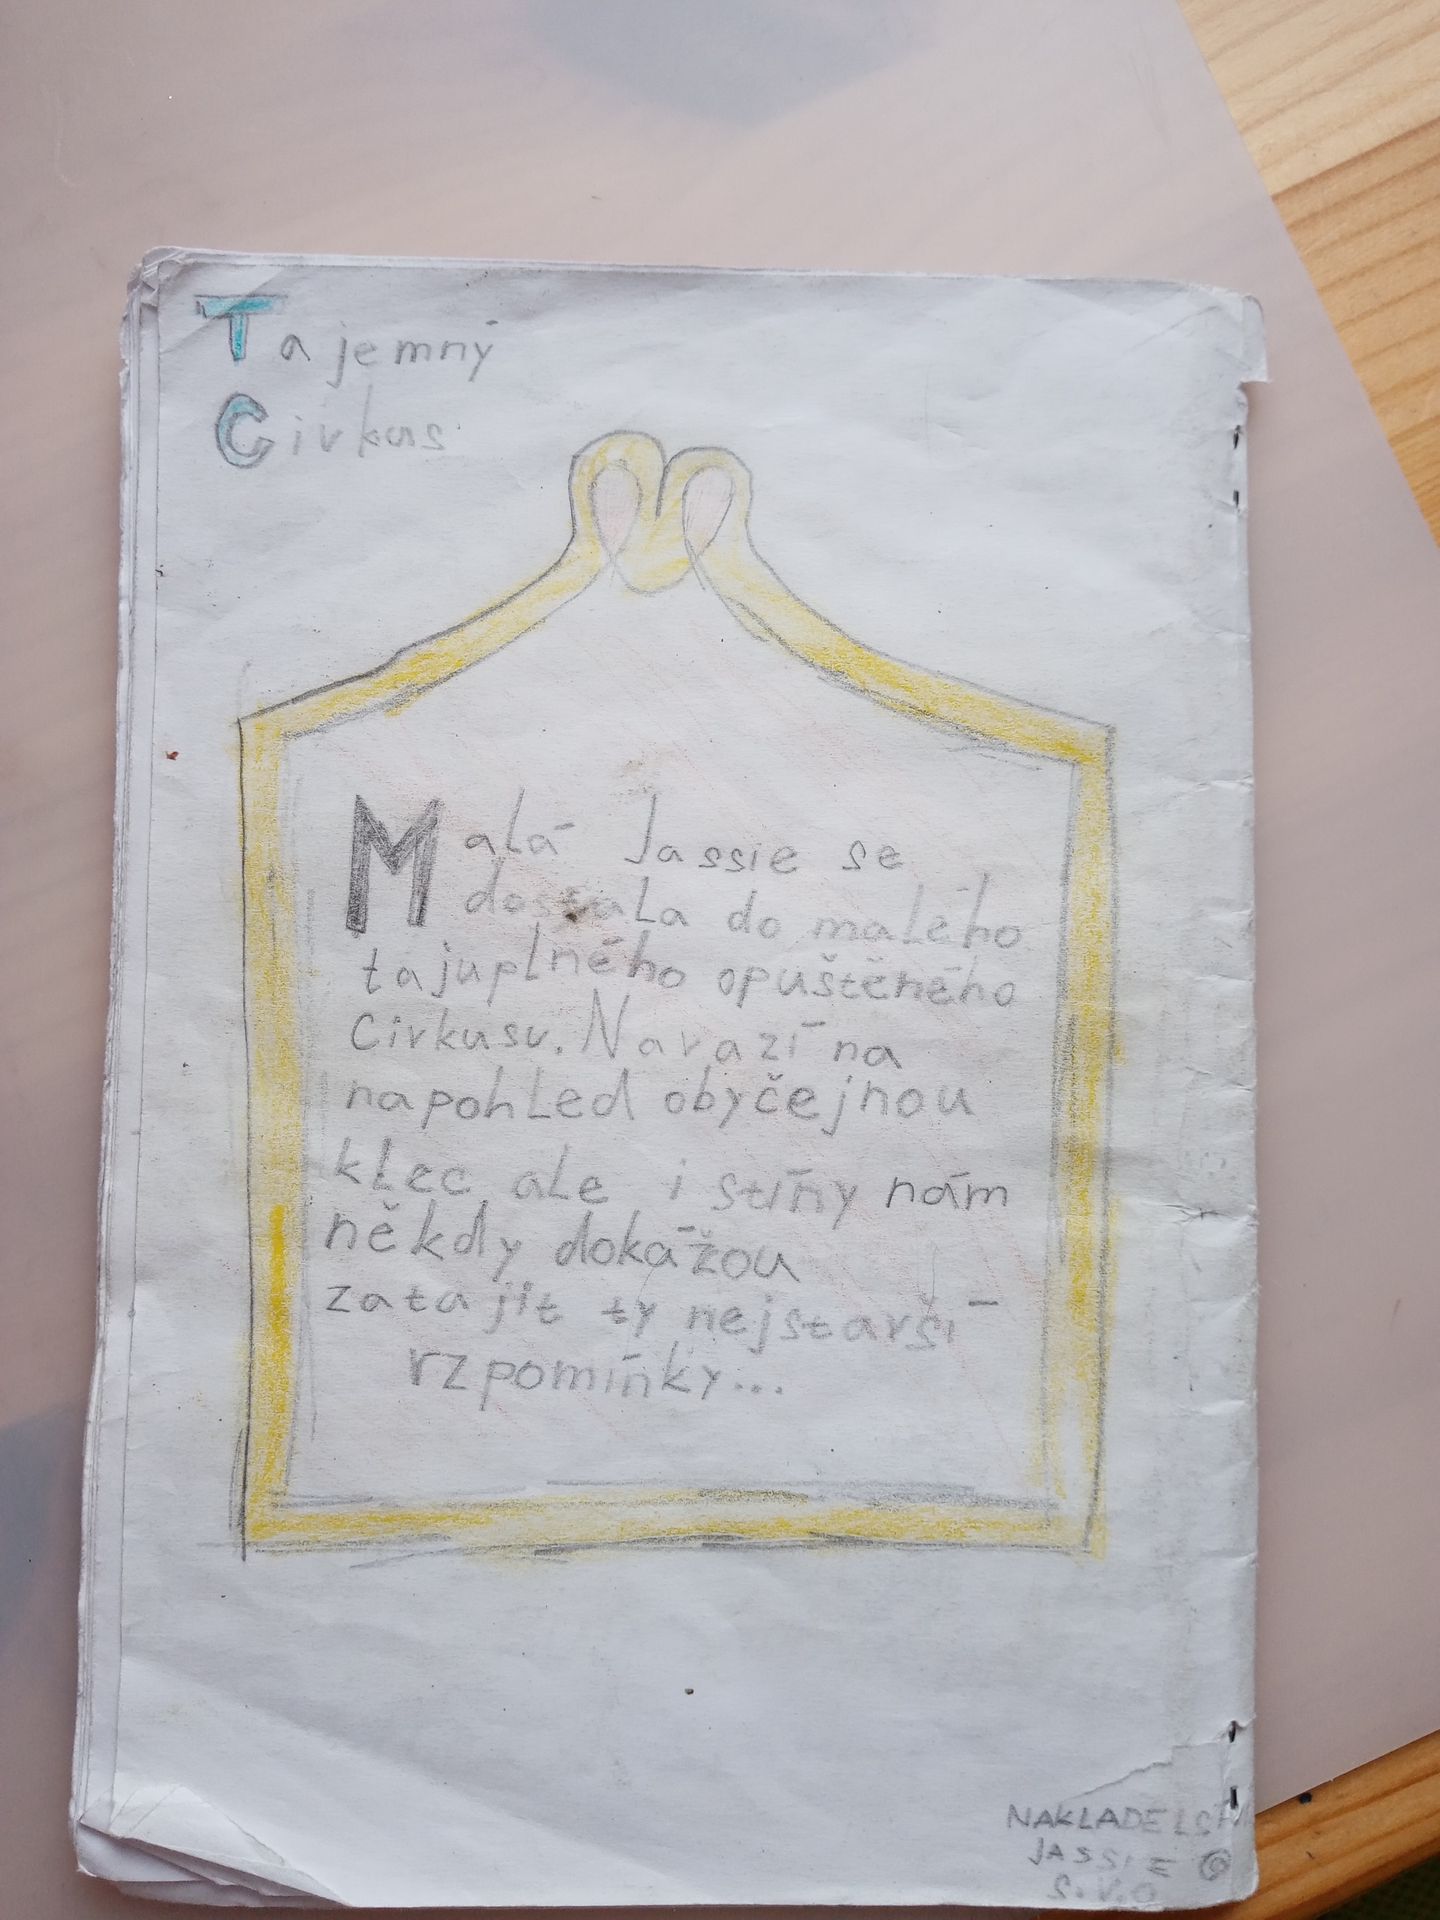 Tajemný
Cirkus
Malá Jassie se
dostala do malého
tajuplného opuštěného
Cirkusu. Narazí na
napohled obyčejnou
klec ale i stíny nám
někdy dokážou
zatajit ty nejstarší
vzpomínky...
NAKLADELSTV
JASSIE ©
S.V.O